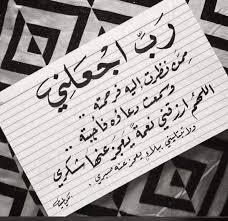 رَبِّ اجْعَلْنِي
مِمَّن نظرتَ إليه فرحمته
وسمعت دعاؤه فأجبته ..
اللهم ارزقني نعمة يعجز عنها شكري
ولا تبتليني ببلاء يعجز عنه صبري .